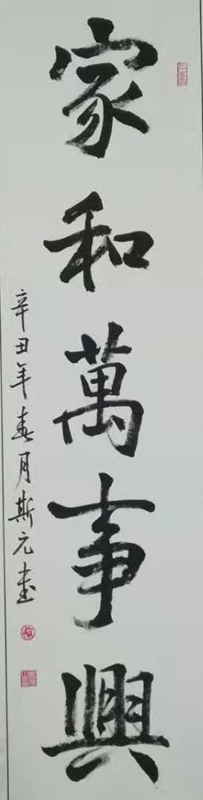 家和萬事興
辛丑年春月斯元書